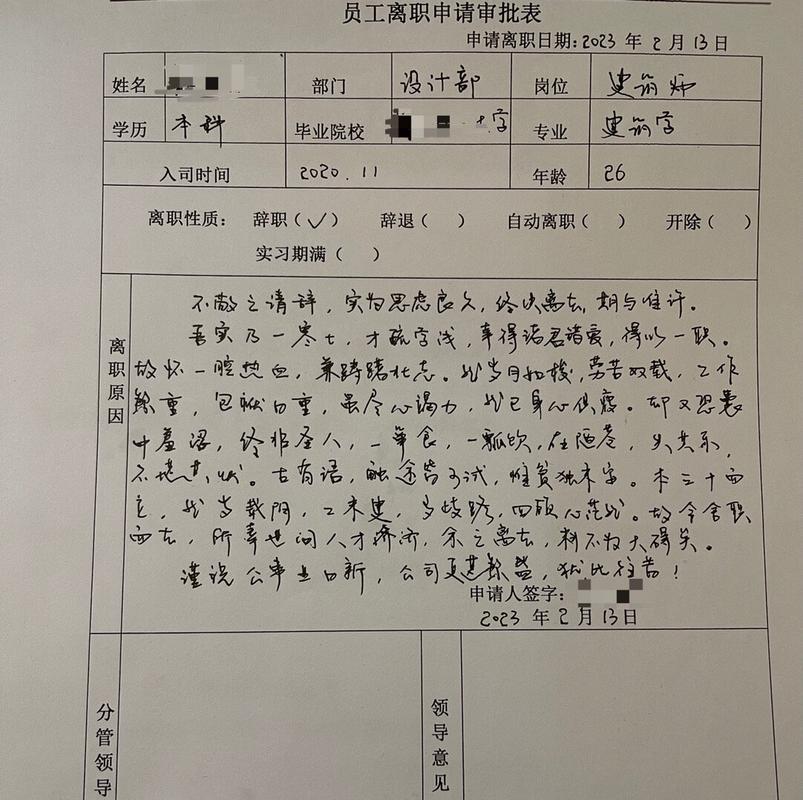 员工离职申请审批表
申请离职日期: 2023 年 2 月 13 日
姓名 部门 设计部 岗位 建筑师
学历 本科 毕业院校 大学 专业 建筑学
入司时间 2020.11 年龄 26
离职性质: 辞职(✓) 辞退( ) 自动离职( ) 开除( )
实习期满( )
离职原因
不敢之请辞,实为思虑良久,终决离去,期与准许。
吾实乃一寒士,才疏学浅,幸得诸君诸爱,得以一职。
故怀一腔热血,兼踌躇壮志。然岁月如梭,劳苦数载,工作
繁重,包袱自重,虽尽心竭力,然已身心俱疲。却又恐囊
中羞涩,终非圣人,一箪食,一瓢饮,在陋巷,失其乐,
不堪其忧。古有语,触途皆可试,惟贫独未字。本三十而
立,然岁载阴,工未建,多歧路,四顾心茫然。故今舍职
而去,所幸世间人才济济,余之离去,料不致大碍矣。
谨祝公事业日新,公司更甚繁盛,犹比往昔!
申请人签字:
2023 年 2 月 13 日
分管领导
领导意见